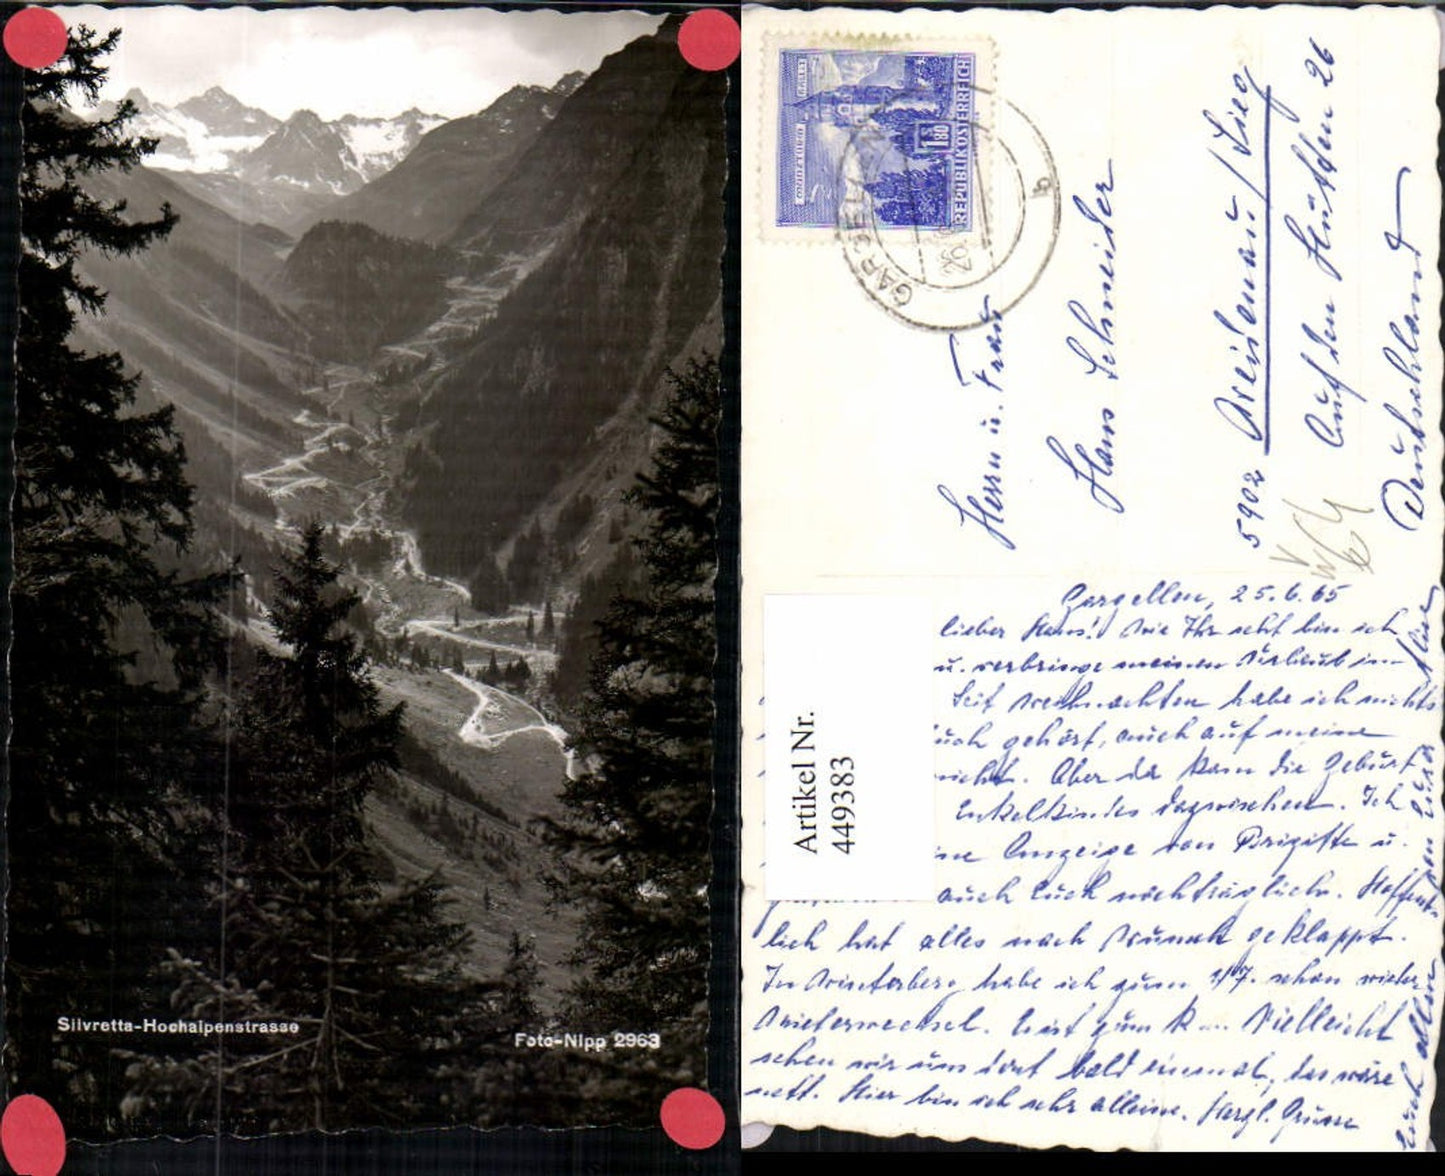 Silvretta-Hochalpenstrasse
Foto-Nipp 2963
MÜNZTURM
HALL I.T.
S 1.80
REPUBLIK ÖSTERREICH
GARGELLEN
b
Herrn u. Frau
Hans Schneider
5902 Weidenau/Sieg
Auf den Hütten 26
Deutschland
Artikel Nr.
449383
Gargellen, 25.6.65
lieber Hans! Wie Ihr seht bin ich
u. verbringe meinen Urlaub im
Seit Weihnachten habe ich nichts
Euch gehört, auch auf meine
nicht. Aber da kam die Geburt
Enkelkindes dazwischen. Ich
Anzeige von Brigitte u.
auch Euch nachträglich. Hoffent-
lich hat alles nach Wunsch geklappt.
In Winterberg habe ich zum 1/7. schon wieder
Mieterwechsel. Vielleicht
sehen wir uns dort bald einmal, das wäre
nett. Hier bin ich sehr alleine. Herzl. Grüsse
Euch allen